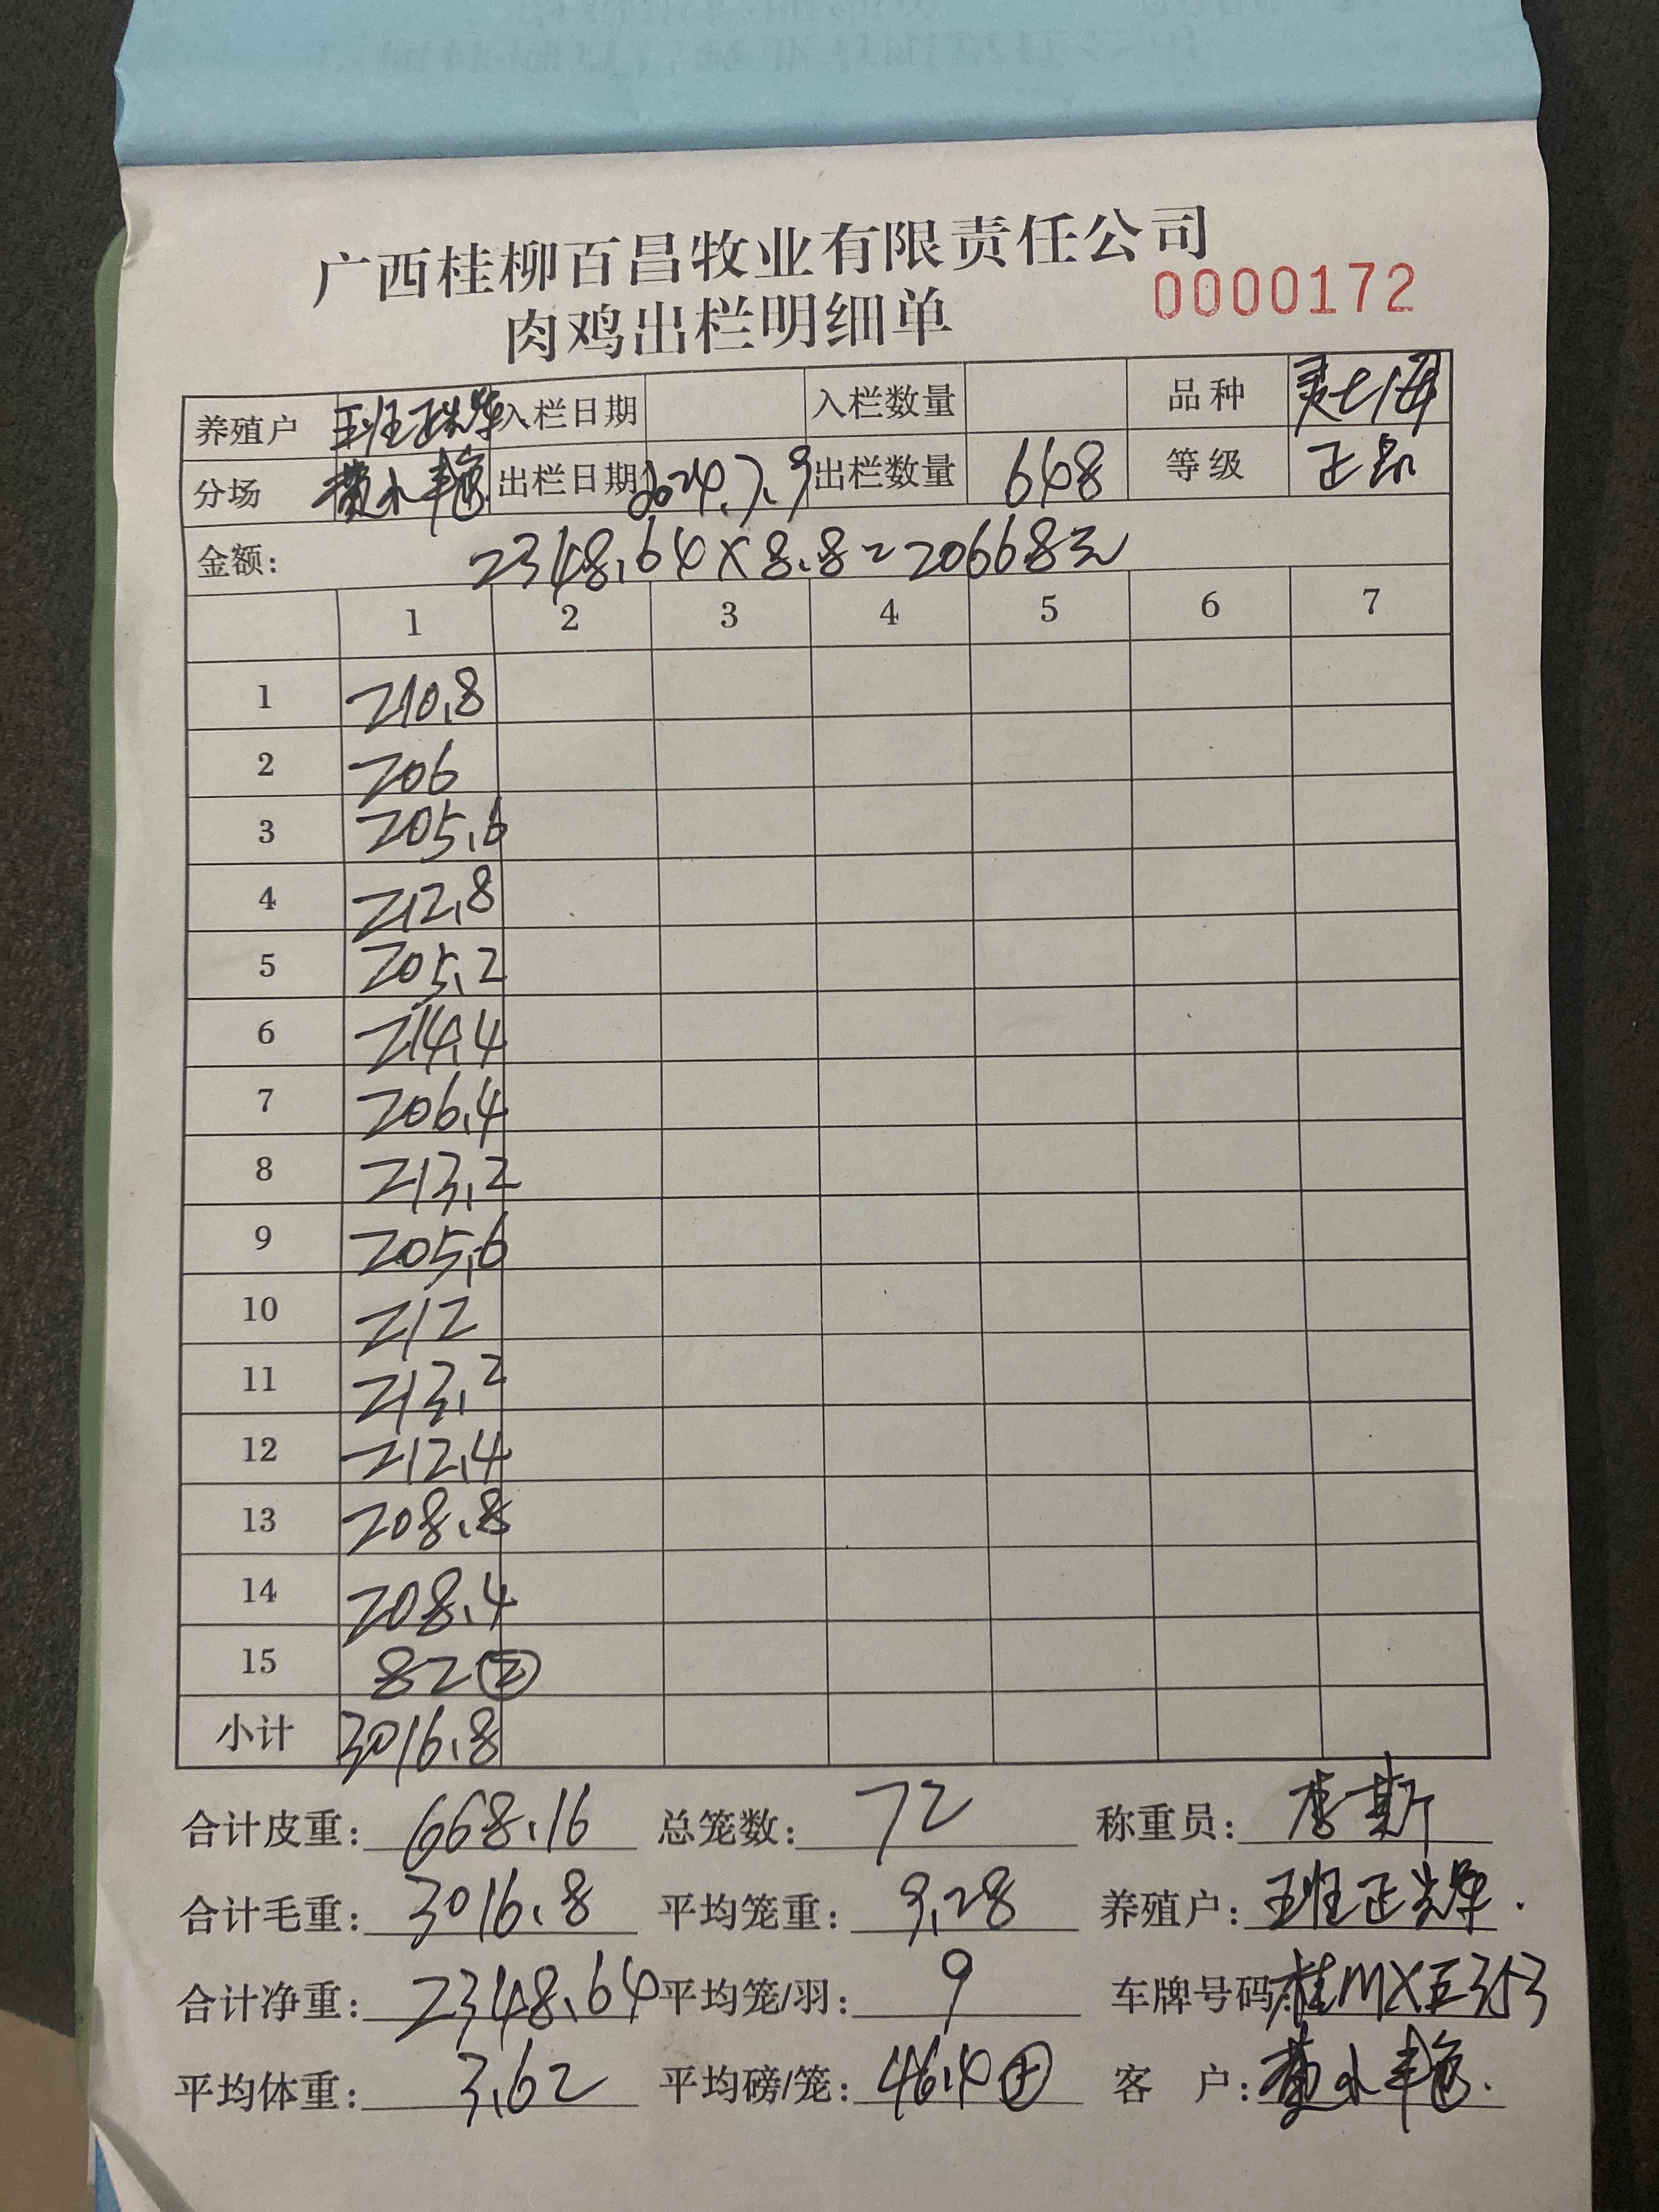 广西桂柳百昌牧业有限责任公司
肉鸡出栏明细单 0000172
养殖户 班正光年 入栏日期 入栏数量 品种
分场 黄小艳 出栏日期 2024.7.9 出栏数量 648 等级 正品
金额: 2348.64×8.8=20668元
1 2 3 4 5 6 7
1 210.8
2 206
3 205.6
4 212.8
5 205.2
6 214.4
7 206.4
8 213.2
9 205.6
10 212
11 213.2
12 212.4
13 208.8
14 208.4
15 82②
小计 3016.8
合计皮重: 668.16 总笼数: 72 称重员: 李斯
合计毛重: 3016.8 平均笼重: 9.28 养殖户:
合计净重: 2348.64 平均笼/羽: 9 车牌号码: 桂MXE353
平均体重: 3.62 平均磅/笼: 46.4 客 户: